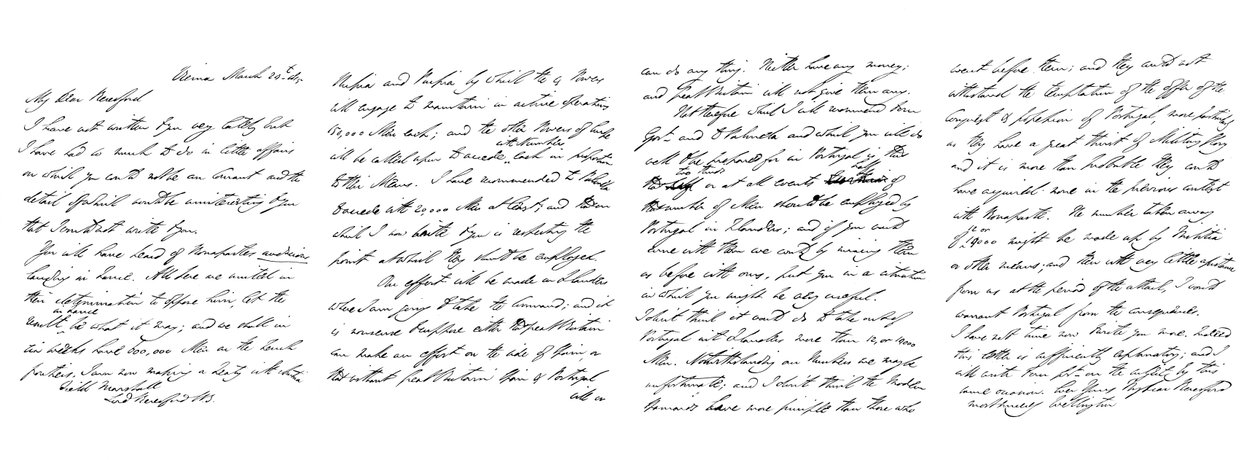 Vienna March 24th. 1815.
My Dear Beresford
I have not written to you very lately but
I have had so much to do in little affairs
on which you could not be au courant and the
detail of which would be uninteresting to you
that I could not write to you.
You will have heard of Bonaparte's
in France. All here are united in
their determination to oppose him, let the
result in France be what it may; and we shall in
six weeks have 600,000 Men on the French
frontiers. I am now making a treaty with Austria
Field Marshall
Lord Beresford KB.
Russia and Prussia by which the 4 Powers
will engage to maintain in active operations
150,000 Men each; and the other Powers of Europe
will be called upon to accede, with Numbers each in proportion
to their Means. I have recommended to Palmella
to accede with 20,000 Men at least; and
what I now write to you is respecting the
point at which they should be employed.
Our effort will be made in Flanders
where I am going to take the Command; and it
is nonsense to suppose either that Great Britain
can make an effort on the side of Spain, or
that without Great Britain Spain & Portugal
can do any thing. Neither have any money;
and Great Britain will not give them any.
that therefore which I will recommend to your
Govt. and to Palmella and which you will do
well to be prepared for in Portugal is that
half
or at all events of
number of Men should be employed by
Portugal in Flanders; and if you could
come with them we could by mixing them
as before with ours, put you in a situation
in which you might be very useful.
I don't think it would do to take out of
Portugal into Flanders more than 12, or 14000
Men. Notwithstanding our Numbers we may be
unfortunate; and I don't think the Modern
Spaniards have more principle than those who
went before them; and they could not
withstand the temptation of the offer of the
conquest & possession of Portugal, more particularly
as they have a great thirst of Military glory
and it is more than probable they could
have acquired none in the previous contest
with Bonaparte. The number taken away
of 12 or 14000 might be made up by Militia
or other means; and then with very little assistance
from us at the period of the attack, I would
warrant Portugal from the consequences.
I have not time now to write to you more. Indeed
this letter is sufficiently explanatory; and I
will write to on the subject by this
same occasion. Ever Yours My Dear Beresford
most sincerely Wellington